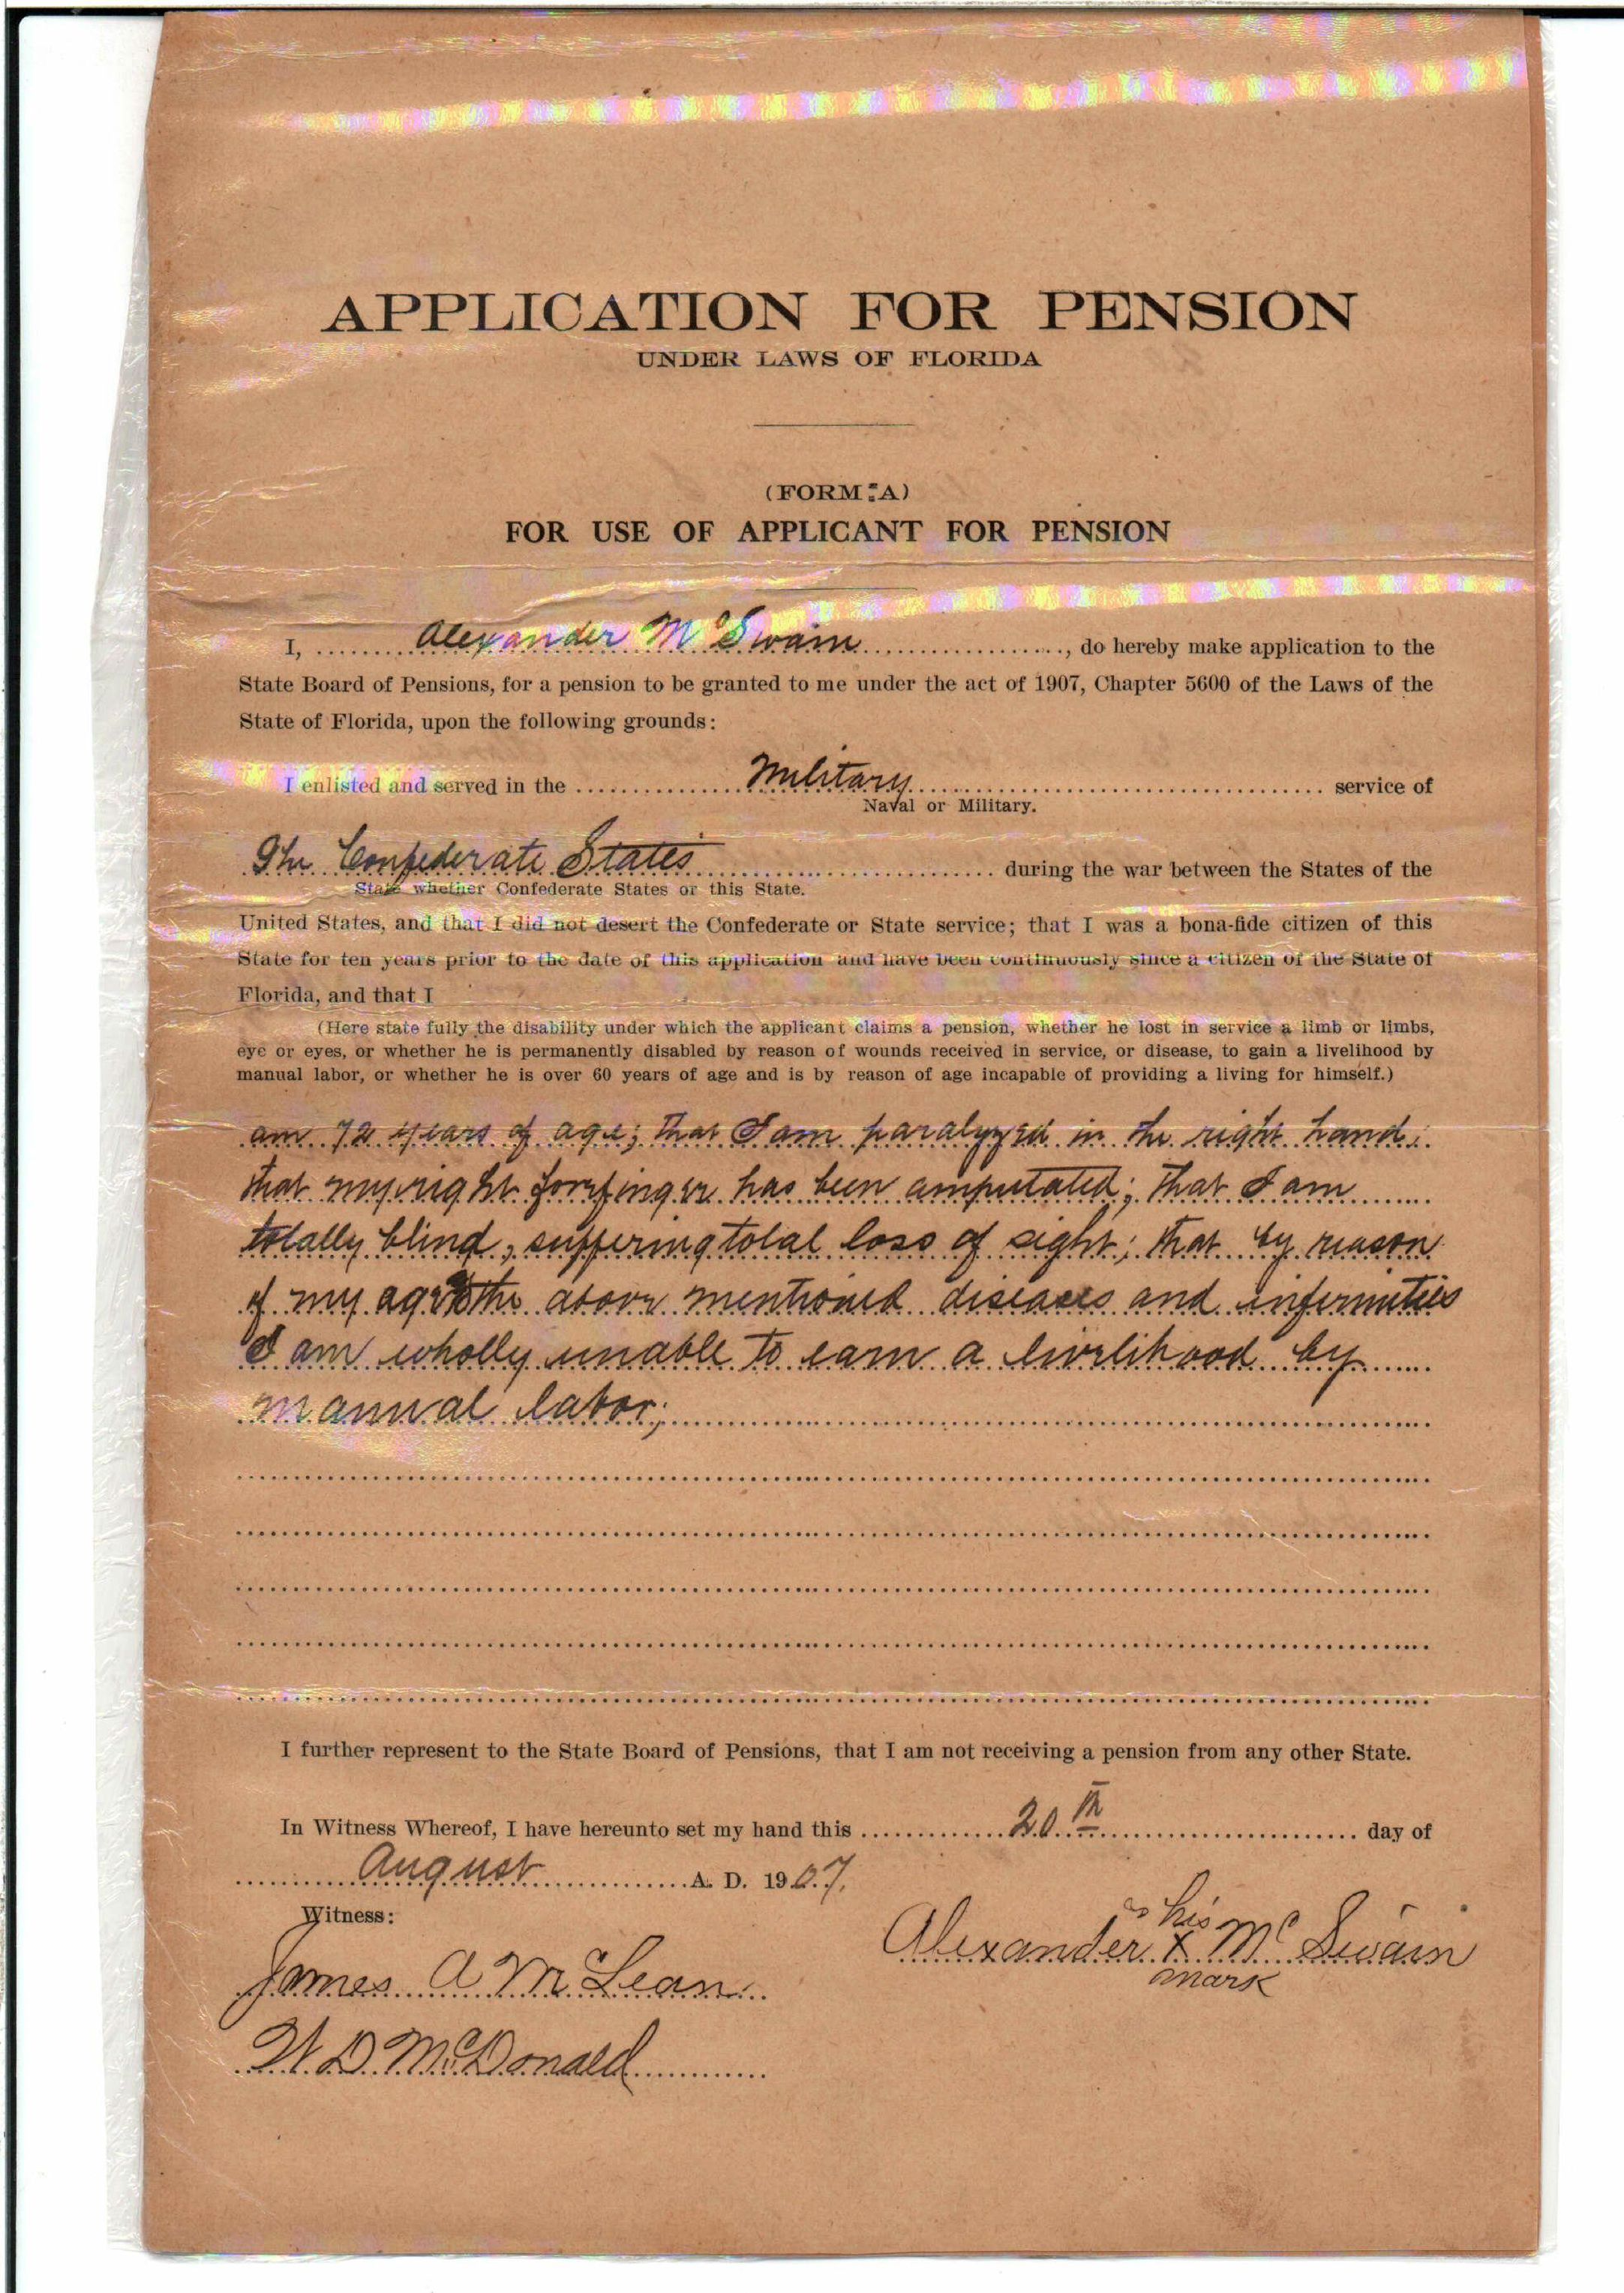 APPLICATION FOR PENSION
UNDER LAWS OF FLORIDA
(FORM A)
FOR USE OF APPLICANT FOR PENSION
I, Alexander McSwain, do hereby make application to the
State Board of Pensions, for a pension to be granted to me under the act of 1907, Chapter 5600 of the Laws of the
State of Florida, upon the following grounds:
I enlisted and served in the Military service of
Naval or Military.
The Confederate States during the war between the States of the
State whether Confederate States or this State.
United States, and that I did not desert the Confederate or State service; that I was a bona-fide citizen of this
State for ten years prior to the date of this application and have been continuously since a citizen of the State of
Florida, and that I
(Here state fully the disability under which the applicant claims a pension, whether he lost in service a limb or limbs,
eye or eyes, or whether he is permanently disabled by reason of wounds received in service, or disease, to gain a livelihood by
manual labor, or whether he is over 60 years of age and is by reason of age incapable of providing a living for himself.)
am 72 years of age; that I am paralyzed in the right hand;
that my right forefinger has been amputated; that I am
totally blind, suffering total loss of sight; that by reason
of my age & the above mentioned diseases and infirmities
I am wholly unable to earn a livelihood by
manual labor;
I further represent to the State Board of Pensions, that I am not receiving a pension from any other State.
In Witness Whereof, I have hereunto set my hand this 20th day of
August A. D. 1907.
Witness:
his
Alexander X McSwain
mark
James A McLean
W D McDonald